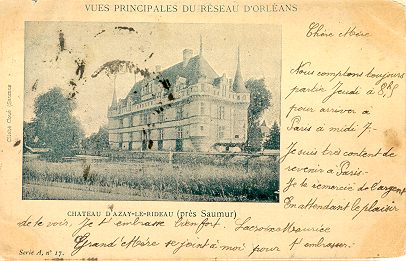 VUES PRINCIPALES DU RÉSEAU D'ORLÉANS
Chère Mère
Nous comptons toujours
partir Jeudi à 8h5
pour arriver à
Paris à midi 7.
Je suis très content de
revenir à Paris-
Je te remercie de l'argent
En attendant le plaisir
CHATEAU D'AZAY-LE-RIDEAU (près Saumur)
de te voir, Je t'embrasse bien fort. Lacroix Maurice
Grand Mère se joint à moi pour t'embrasser.
Série A, n° 17.